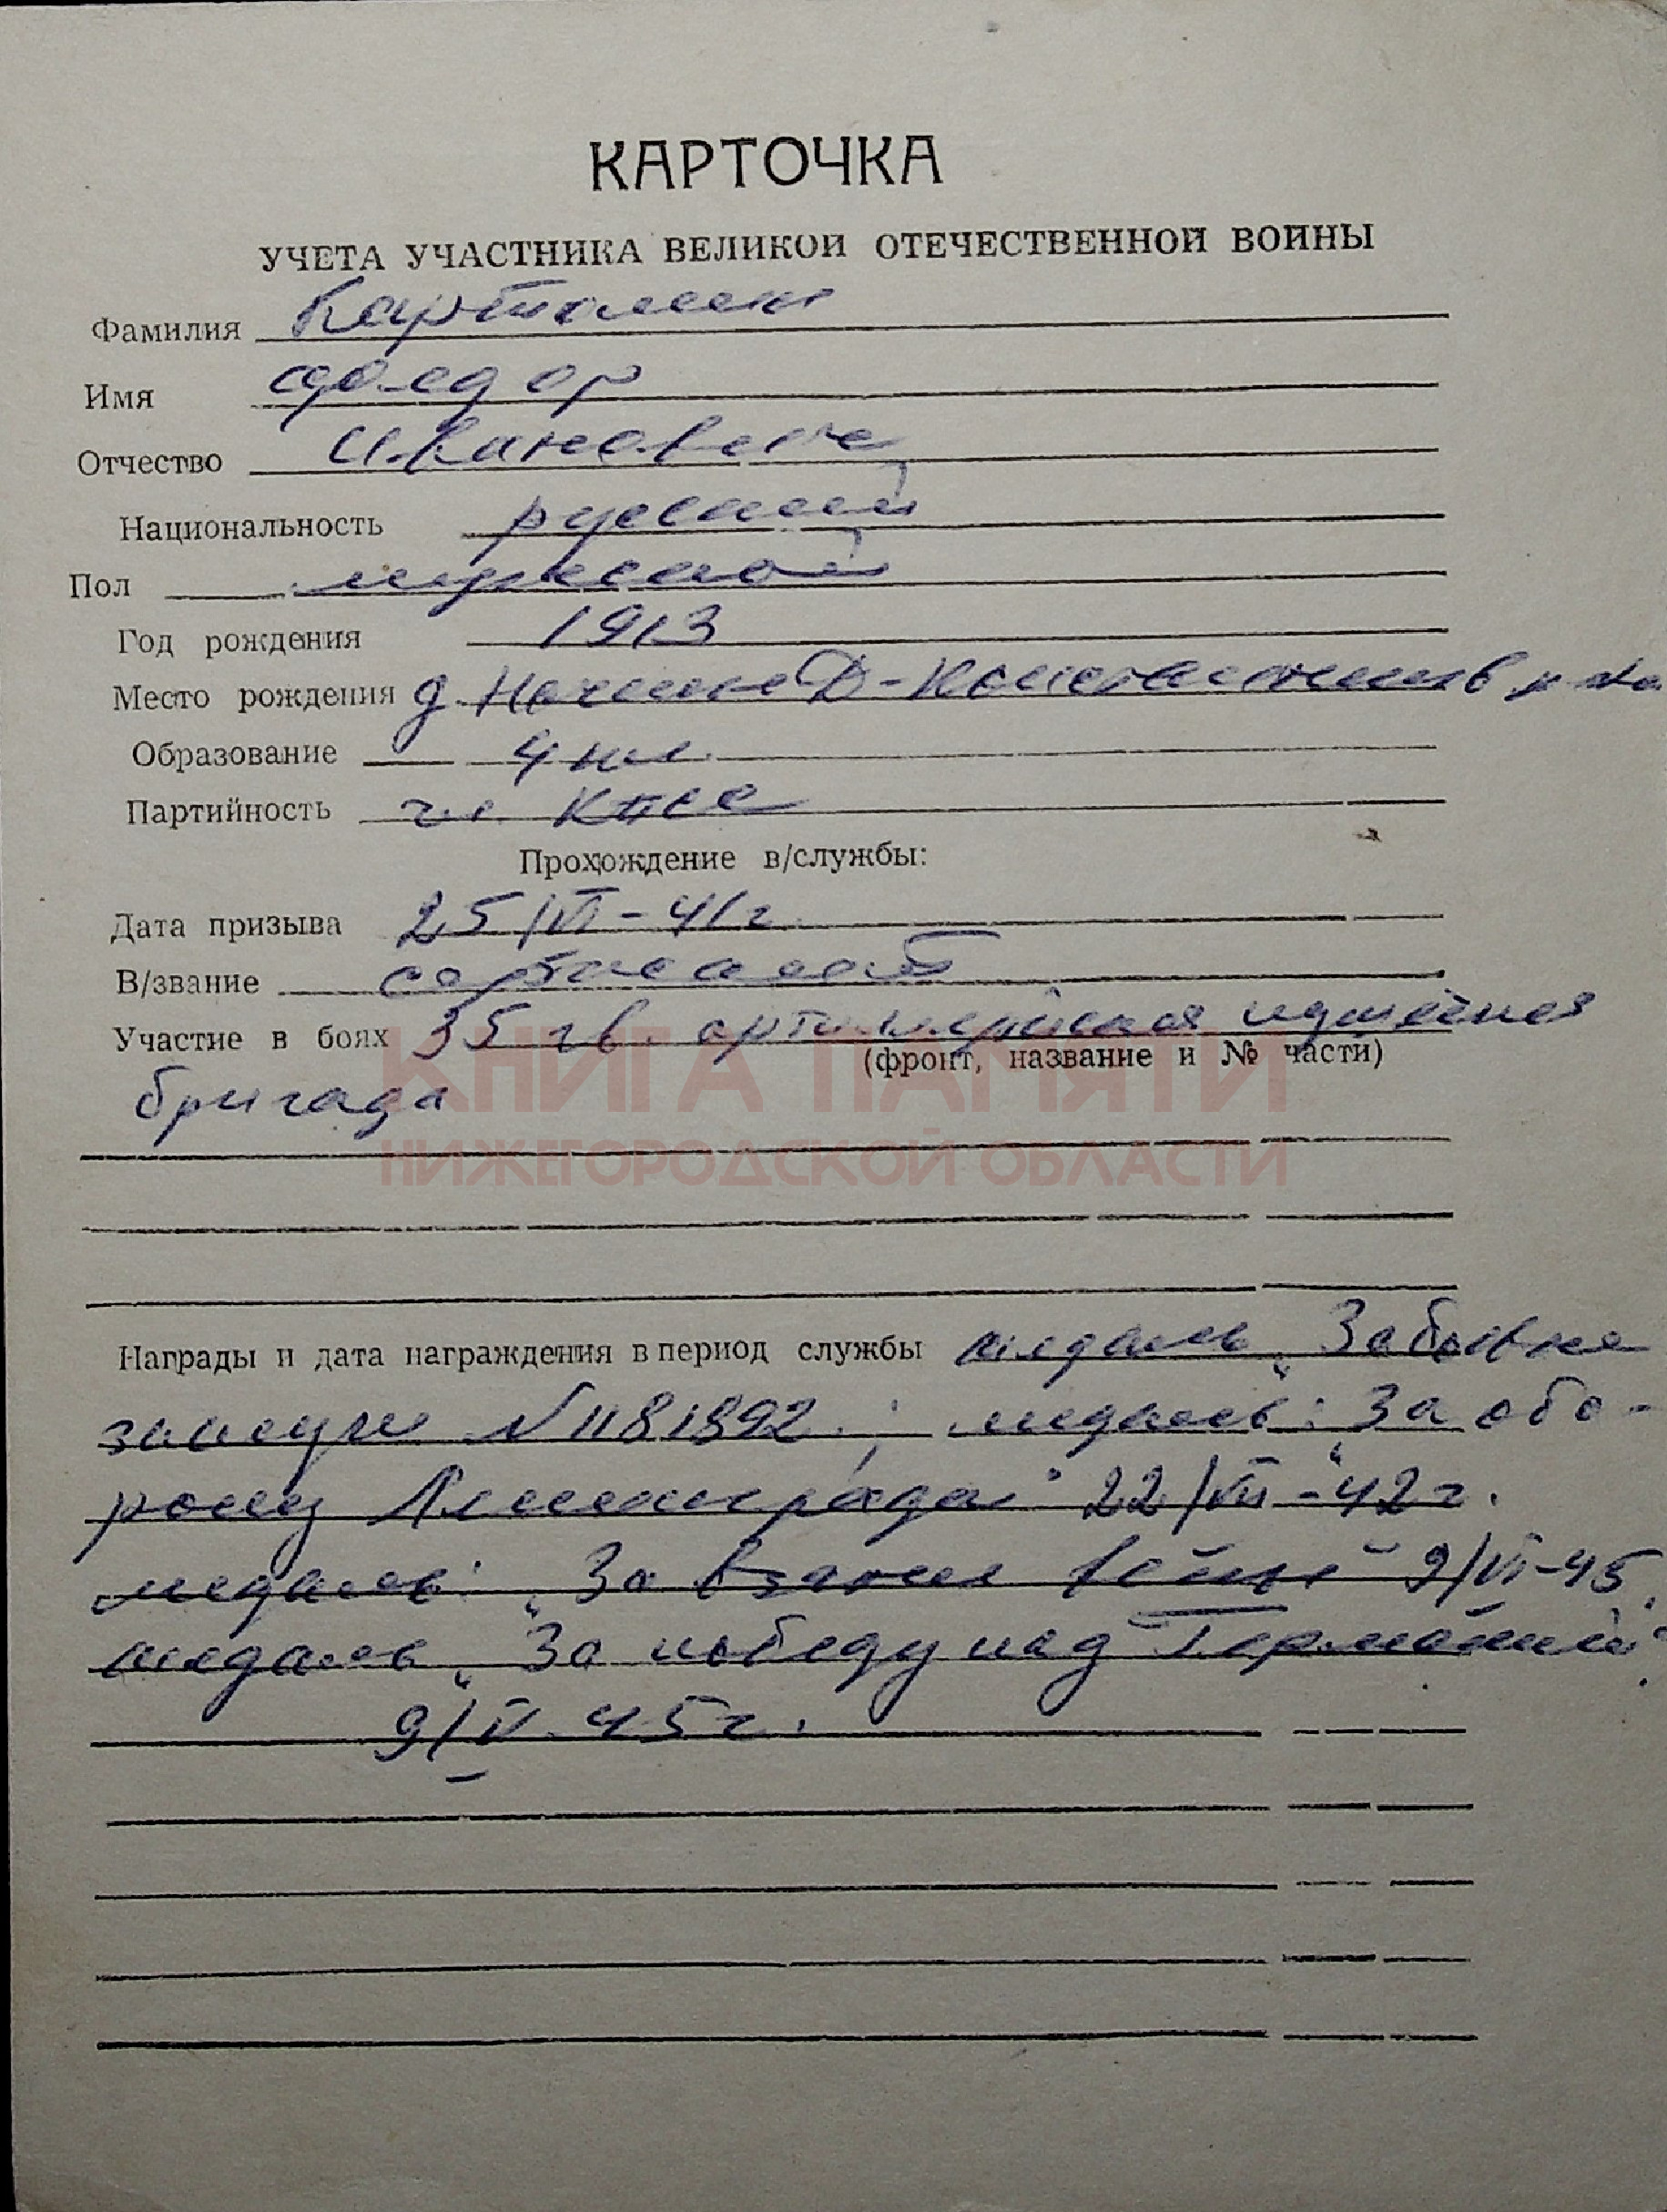 КАРТОЧКА
УЧЕТА УЧАСТНИКА ВЕЛИКОЙ ОТЕЧЕСТВЕННОЙ ВОЙНЫ
Фамилия
Имя Федор
Отчество Иванович
Национальность русский
Пол мужской
Год рождения 1913
Место рождения д. Д-Константинов
Образование 4 кл.
Партийность чл. КПСС
Прохождение в/службы:
Дата призыва 25/VI-41г.
В/звание сержант
Участие в боях 35 гв. артиллерийская пушечная
(фронт, название и № части)
бригада
КНИГА ПАМЯТИ
НИЖЕГОРОДСКОЙ ОБЛАСТИ
Награды и дата награждения в период службы медаль „За боевые
заслуги N 1181892.; медаль: „За обо-
рону Ленинграда" 22/XII-42г.
медаль: „За взятие 9/VI-45
медаль „За победу над Германией"
9/V-45г.